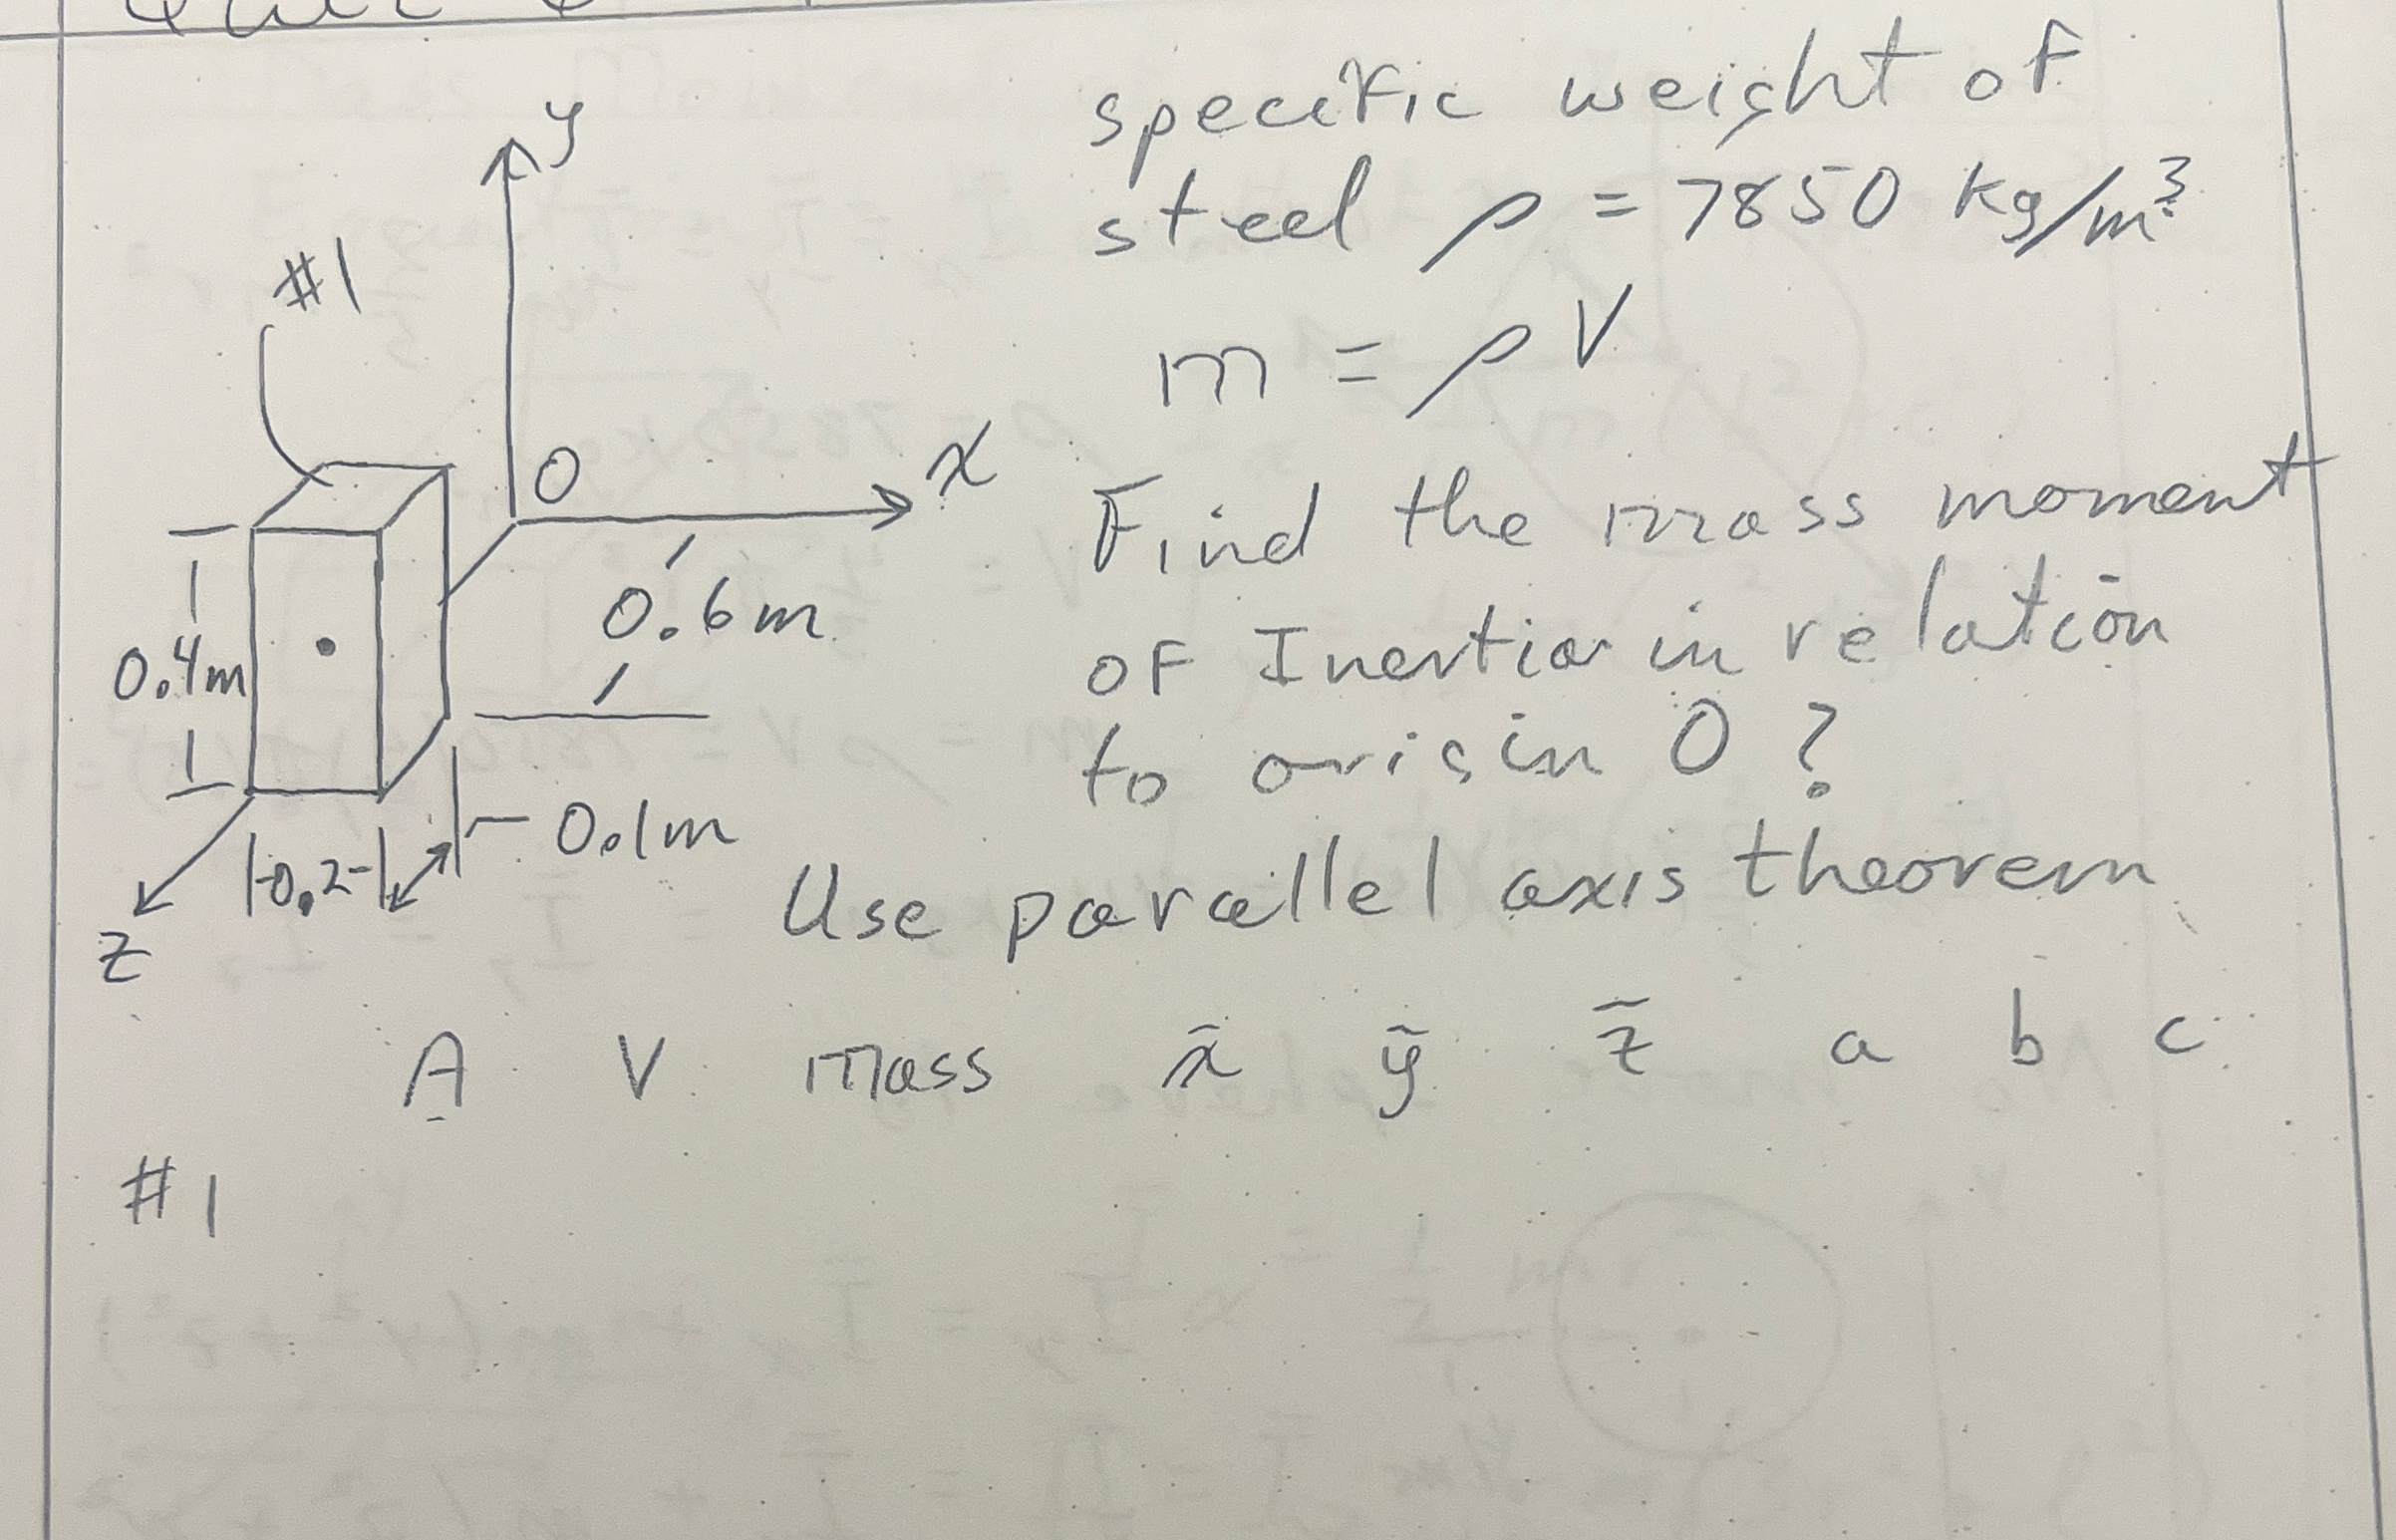 y
#1
O
x
0.6m
0.4m
|-0.2-|
0.1m
z
specific weight of
steel ρ = 7850 kg/m³
m = ρ V
Find the mass moment
of Inertia in relation
to origin O ?
Use parallel axis theorem
A V mass x̄ ȳ z̄ a b c
#1